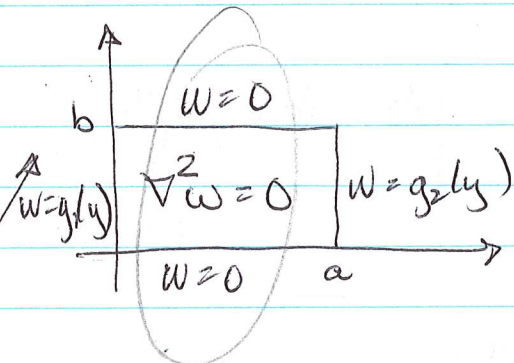 w=0
b
w=g₁(y) ∇²w=0 w=g₂(y)
w=0 a